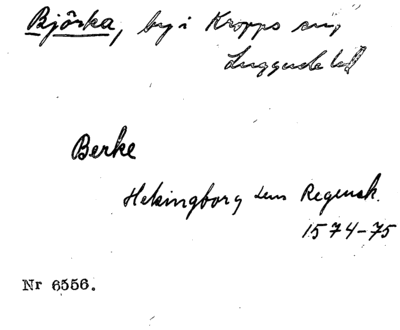 Björka, by i Kropps sn,
Luggude hd
Berke
Helsingborg Lens Regensk.
1574-75
Nr 6556.